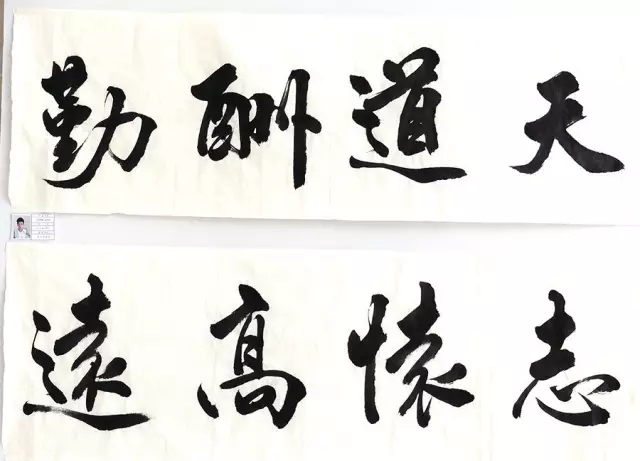 天道酬勤
志懷高遠